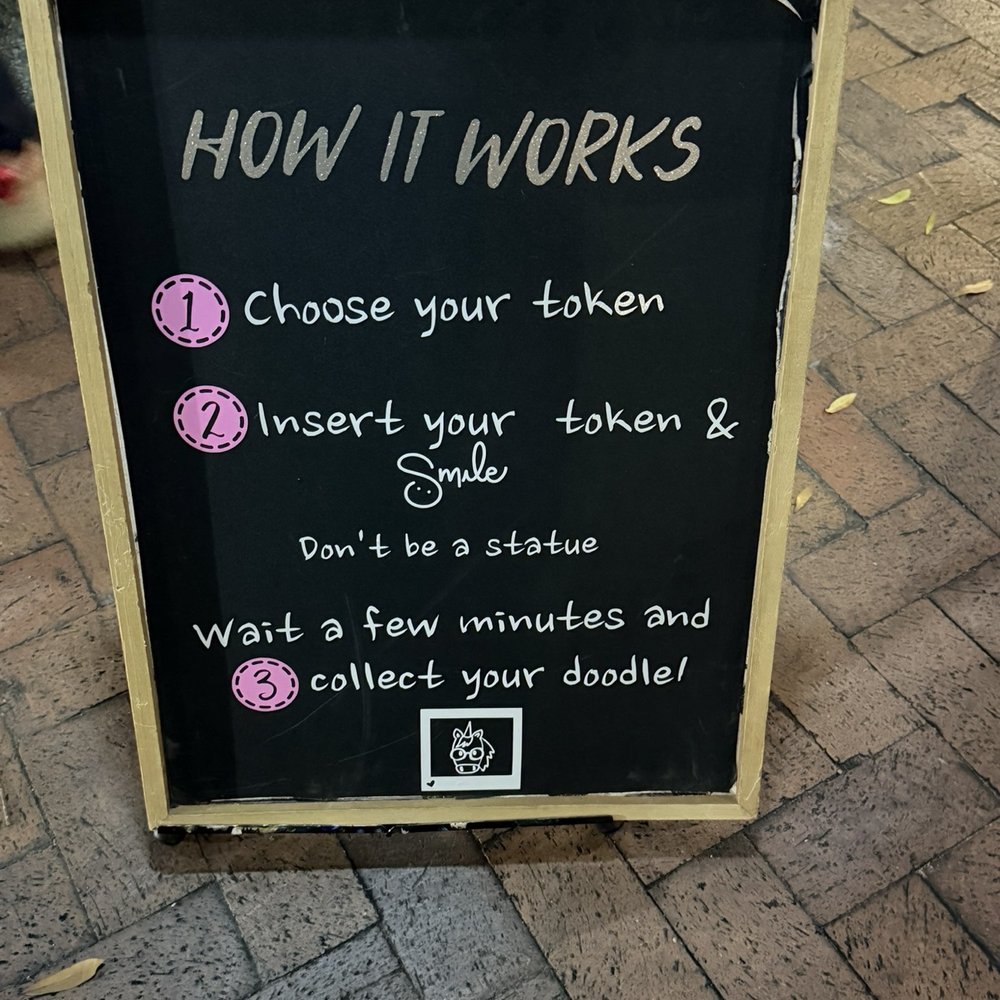 HOW IT WORKS
1 Choose your token
2 Insert your token &
Smile
Don't be a statue
Wait a few minutes and
3 collect your doodle!